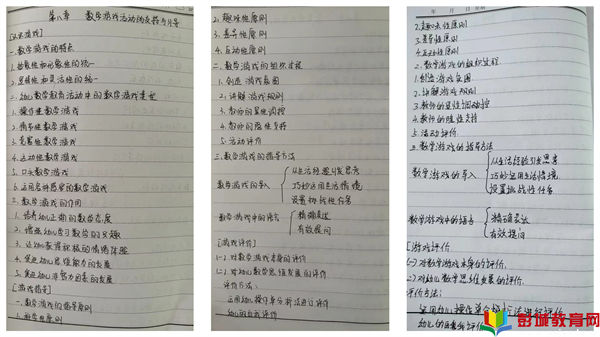 第八章 数学游戏活动的支持与引导
[认识游戏]
一.数学游戏的特点
1.抽象性和形象性的统一
2.逻辑性和灵活性的统一
二.幼儿数学教育活动中的数学游戏类型
1.操作性数学游戏
2.情节性数学游戏
3.竞赛性数学游戏
4.运动性数学游戏
5.口头数学游戏
6.运用各种感官的数学游戏
三.数学游戏的作用
1.培养幼儿正确的数学态度
2.增强幼儿学习数学的兴趣
3.让幼儿获得积极的情绪体验
4.促进幼儿思维能力的发展
5.促进幼儿非智力因素的发展
[游戏指导]
一.数学游戏的指导原则
2.趣味性原则
3.差异性原则
4.互动性原则
二.数学游戏的组织过程
1.创造游戏氛围
2.讲解游戏规则
3.教师的显性调控
4.教师的隐性支持
5.活动评价
三.数学游戏的指导方法
数学游戏的导入
从生活经验引发思考
巧妙运用生活情境
设置挑战性任务
数学游戏中的语言
精确表达
有效提问
[游戏评价]
(一)对数学游戏本身的评价
(二)对幼儿数学思维发展的评价
评价方法:
运用幼儿操作单分析法进行评价
幼儿的自我评价
年 月 日
2.趣味性原则
3.差异性原则
4.互动性原则
二.数学游戏的组织过程
1.创造游戏氛围
2.讲解游戏规则
3.教师的显性调控
4.教师的隐性支持
5.活动评价
三.数学游戏的指导方法
数学游戏的导入
从生活经验引发思考
巧妙运用生活情境
设置挑战性任务
数学游戏中的语言
精确表达
有效提问
[游戏评价]
(一)对数学游戏本身的评价
(二)对幼儿数学思维发展的评价
评价方法:
运用幼儿操作单分析法进行评价
幼儿的自我评价
彭城教育网